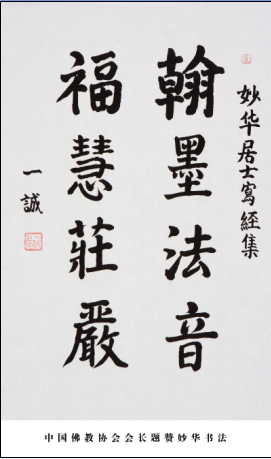 妙华居士寫經集
翰墨法音
福慧莊嚴
一誠
中国佛教协会会长题赞妙华书法